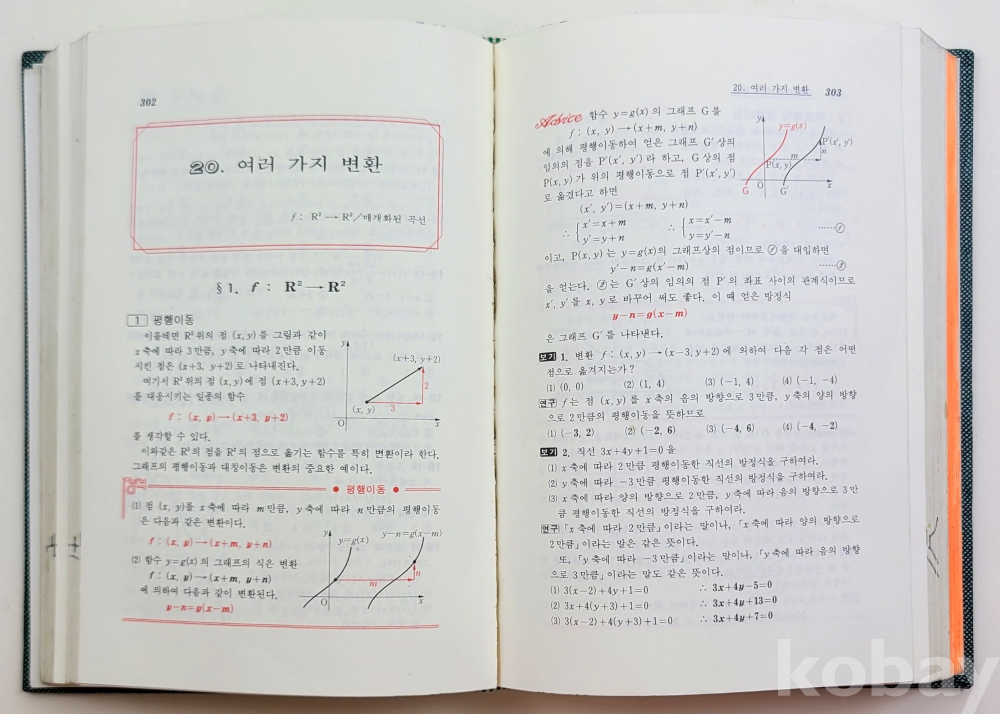 302
20. 여러 가지 변환
f : R² → R²/매개화된 곡선
§1. f : R² → R²
1 평행이동
이를테면 R²위의 점 (x, y)를 그림과 같이
x축에 따라 3만큼, y축에 따라 2만큼 이동
시킨 점은 (x+3, y+2)로 나타내진다.
여기서 R²위의 점 (x, y)에 점 (x+3, y+2)
를 대응시키는 일종의 함수
f : (x, y) → (x+3, y+2)
를 생각할 수 있다.
이와같은 R²의 점을 R²의 점으로 옮기는 함수를 특히 변환이라 한다.
그래프의 평행이동과 대칭이동은 변환의 중요한 예이다.
y
(x+3, y+2)
2
3
(x, y)
O
x
평행이동
(1) 점 (x, y)를 x축에 따라 m만큼, y축에 따라 n만큼의 평행이동
은 다음과 같은 변환이다.
f : (x, y) → (x+m, y+n)
(2) 함수 y=g(x)의 그래프의 식은 변환
f : (x, y) → (x+m, y+n)
에 의하여 다음과 같이 변환된다.
y-n=g(x-m)
y
y=g(x)
y-n=g(x-m)
m
n
O
x
20. 여러 가지 변환 303
Advice 함수 y=g(x)의 그래프 G를
f : (x, y) → (x+m, y+n)
에 의해 평행이동하여 얻은 그래프 G′상의
임의의 점을 P′(x′, y′)라 하고, G상의 점
P(x, y)가 위의 평행이동으로 점 P′(x′, y′)
로 옮겼다고 하면
(x′, y′)=(x+m, y+n)
∴ { x′=x+m ∴ { x=x′-m
y′=y+n y=y′-n ……ⓕ
이고, P(x, y)는 y=g(x)의 그래프상의 점이므로 ⓕ을 대입하면
y′-n=g(x′-m)
을 얻는다. 는 G′상의 임의의 점 P′의 좌표 사이의 관계식이므로
x′, y′를 x, y로 바꾸어 써도 좋다. 이 때 얻은 방정식
y-n=g(x-m)
은 그래프 G′를 나타낸다.
y
y=g(x)
P′(x′, y′)
n
m
P(x, y)
G
O
G′
x
보기 1. 변환 f : (x, y) → (x-3, y+2)에 의하여 다음 각 점은 어떤
점으로 옮겨지는가?
(1) (0, 0) (2) (1, 4) (3) (-1, 4) (4) (-1, -4)
연구 f는 점 (x, y)를 x축의 음의 방향으로 3만큼, y축의 양의 방향
으로 2만큼의 평행이동을 뜻하므로
(1) (-3, 2) (2) (-2, 6) (3) (-4, 6) (4) (-4, -2)
보기 2. 직선 3x+4y+1=0을
(1) x축에 따라 2만큼 평행이동한 직선의 방정식을 구하여라.
(2) y축에 따라 -3만큼 평행이동한 직선의 방정식을 구하여라.
(3) x축에 따라 양의 방향으로 2만큼, y축에 따라 음의 방향으로 3만
큼 평행이동한 직선의 방정식을 구하여라.
연구 「x축에 따라 2만큼」이라는 말이나, 「x축에 따라 양의 방향으로
2만큼」이라는 말은 같은 뜻이다.
또, 「y축에 따라 -3만큼」이라는 말이나, 「y축에 따라 음의 방향
으로 3만큼」이라는 말도 같은 뜻이다.
(1) 3(x-2)+4y+1=0 ∴ 3x+4y-5=0
(2) 3x+4(y+3)+1=0 ∴ 3x+4y+13=0
(3) 3(x-2)+4(y+3)+1=0 ∴ 3x+4y+7=0
kobay